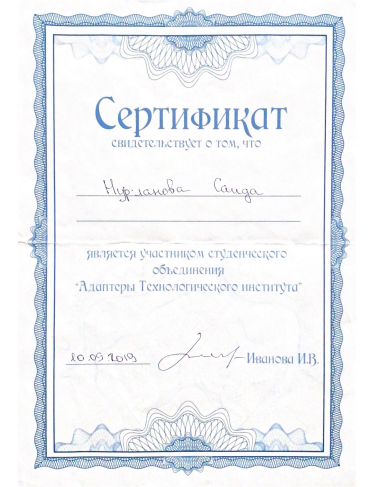 Сертификат
свидетельствует о том, что
Нурланова Саида
является участником студенческого
объединения
"Адаптеры Технологического института"
20.09.2019 Иванова И.В.